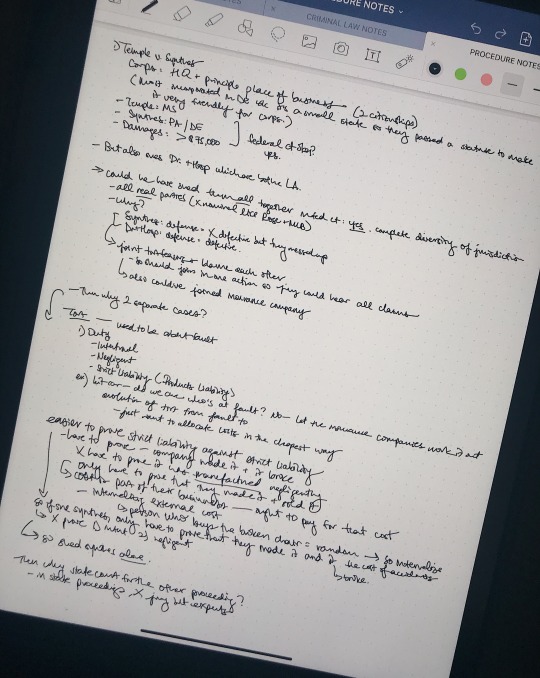 CRIMINAL LAW NOTES
PROCEDURE NOTES
1) Temple v. Synthes
Corps: HQ + principle place of business (2 citizenships)
(most incorporated in DE bc its a small state so they passed a statute to make
it very friendly for corps.)
- Temple: MS
- Synthes: PA/DE
- Damages: > $75,000
federal ct? yes.
- But also sues Dr. + Hosp which are both LA.
→ could he have sued them all together in fed ct: yes. complete diversity of jurisdiction
- all real parties (X nominal like Rose + MLB)
- why?
Synthes: defense = X defective but they messed up
Dr + Hosp: defense = defective.
↳ joint tortfeasors blame each other
- so should join in one action so jury could hear all claims
↳ also could've joined insurance company
- Then why 2 separate cases?
Tort — used to be about fault
1) Duty
- Intentional
- Negligent
- Strict Liability (Products Liability)
ex) car — do we care who's at fault? No — let the insurance companies work it out
evolution of tort from fault to
- just want to allocate costs in the cheapest way
easier to prove strict liability against strict liability
- have to prove — company made it + it broke
X have to prove it was manufactured negligently
↳ only have to prove that they made it + sold it
costs r part of their business — ought to pay for that cost
- internalize external cost
↳ person who buys the broken chair = random → so internalize the cost of accidents
so if one synthes, only have to prove that they made it and it broke.
↳ X prove 1) intent 2) negligent
↳ so sued synthes alone.
Then why state court for the other proceeding?
- in state proceedings, X jury but experts